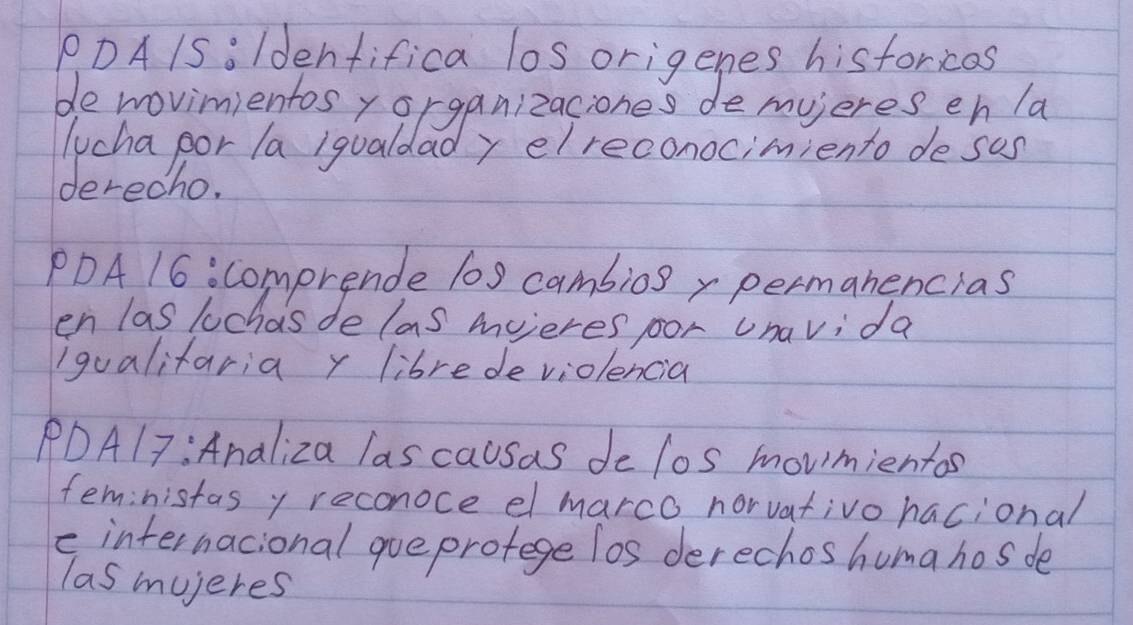 PDA 15: Identifica los origenes historicos
de movimientos y organizaciones de mujeres en la
lucha por la igualdad y el reconocimiento de sus
derecho.
PDA 16: comprende los cambios y permanencias
en las luchas de las mujeres por una vida
igualitaria y libre de violencia
PDA 17: Analiza las causas de los movimientos
feministas y reconoce el marco norvativo nacional
e internacional que protege los derechos humanos de
las mujeres